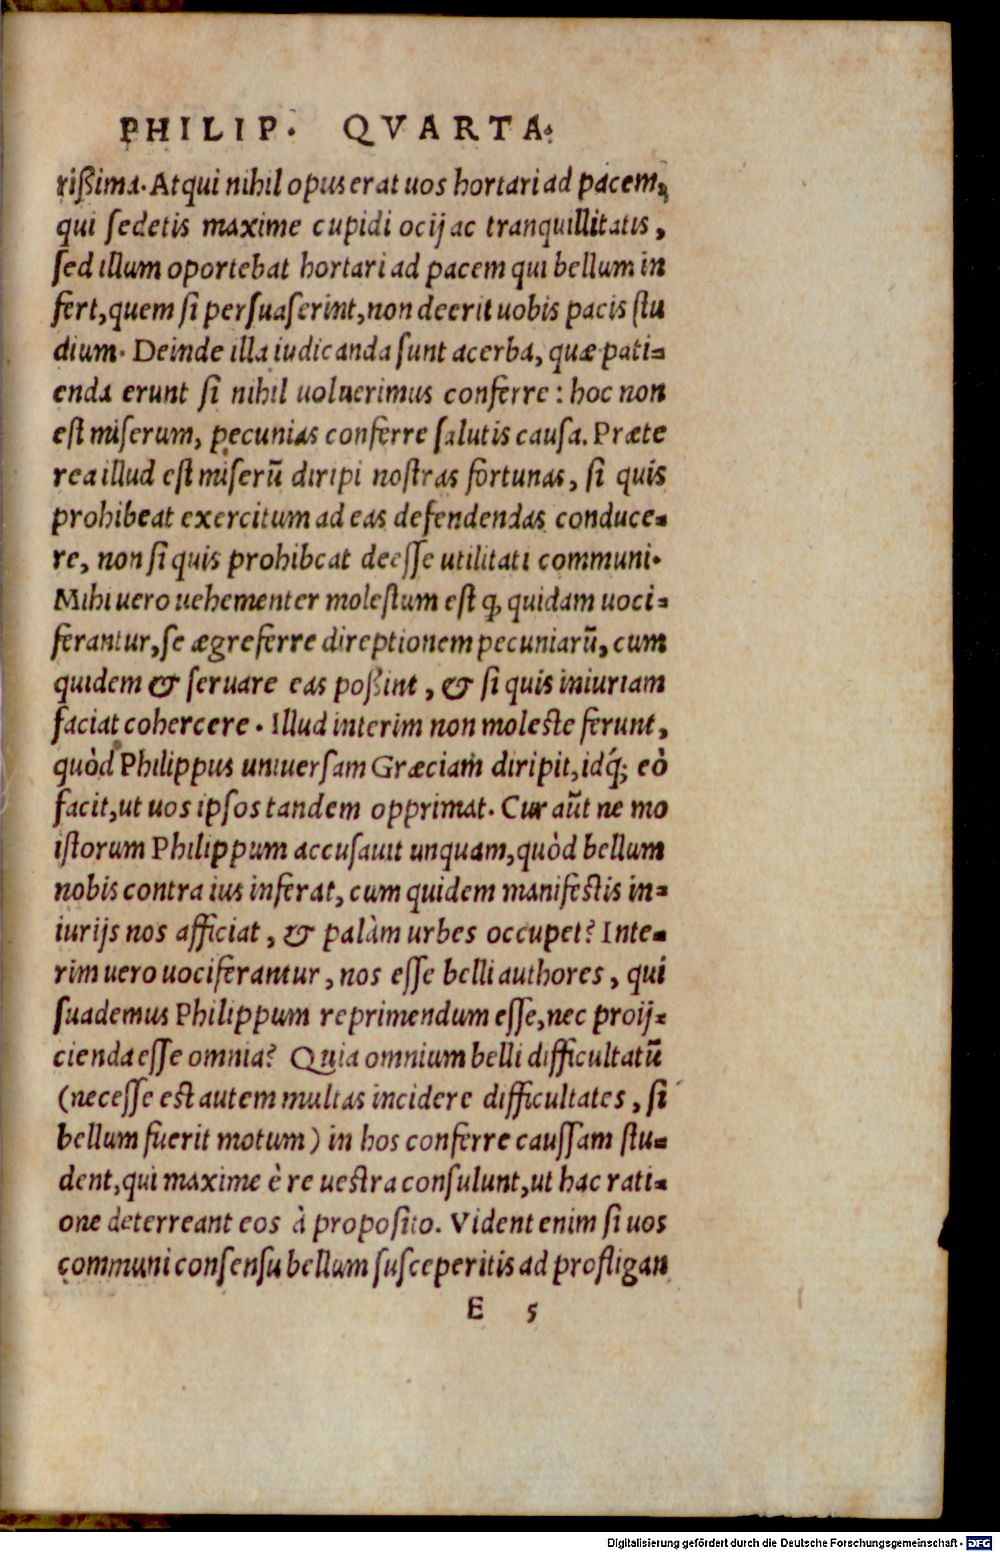 PHILIP. QVARTA.
rißima. Atqui nihil opus erat uos hortari ad pacem,
qui ſedetis maxime cupidi ocij ac tranquillitatis,
ſed illum oportebat hortari ad pacem qui bellum in
fert, quem ſi perſuaſerint, non deerit uobis pacis ſtu
dium. Deinde illa iudicanda ſunt acerba, quæ pati-
enda erunt ſi nihil uoluerimus conferre: hoc non
eſt miſerum, pecunias conferre ſalutis cauſa. Præte
rea illud eſt miſerū diripi noſtras fortunas, ſi quis
prohibeat exercitum ad eas defendendas conduce-
re, non ſi quis prohibeat deeſſe utilitati communi.
Mihi uero uehementer moleſtum eſt ꝙ quidam uoci-
ferantur, ſe ægre ferre direptionem pecuniarū, cum
quidem & ſeruare eas poßint, & ſi quis iniuriam
faciat cohercere. Illud interim non moleſte ferunt,
quòd Philippus uniuerſam Græciam diripit, idq́; eò
facit, ut uos ipſos tandem opprimat. Cur aūt ne mo
iſtorum Philippum accuſauit unquam, quòd bellum
nobis contra ius inferat, cum quidem manifeſtis in-
iurijs nos afficiat, & palàm urbes occupet? Inte-
rim uero uociferantur, nos eſſe belli authores, qui
ſuademus Philippum reprimendum eſſe, nec proij-
cienda eſſe omnia? Quia omnium belli difficultatū
(neceſſe eſt autem multas incidere difficultates, ſi
bellum fuerit motum) in hos conferre cauſſam ſtu-
dent, qui maxime è re ueſtra conſulunt, ut hac rati-
one deterreant eos à propoſito. Vident enim ſi uos
communi conſenſu bellum ſuſceperitis ad profligan
E 5
Digitalisierung gefördert durch die Deutsche Forschungsgemeinschaft - DFG